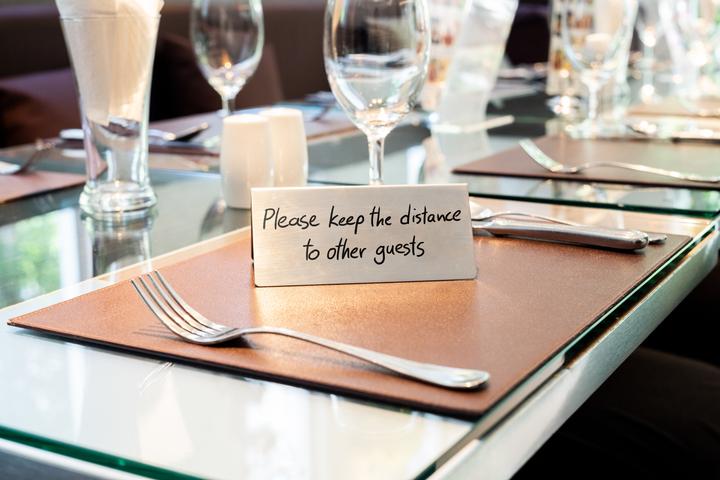 Please keep the distance
to other guests